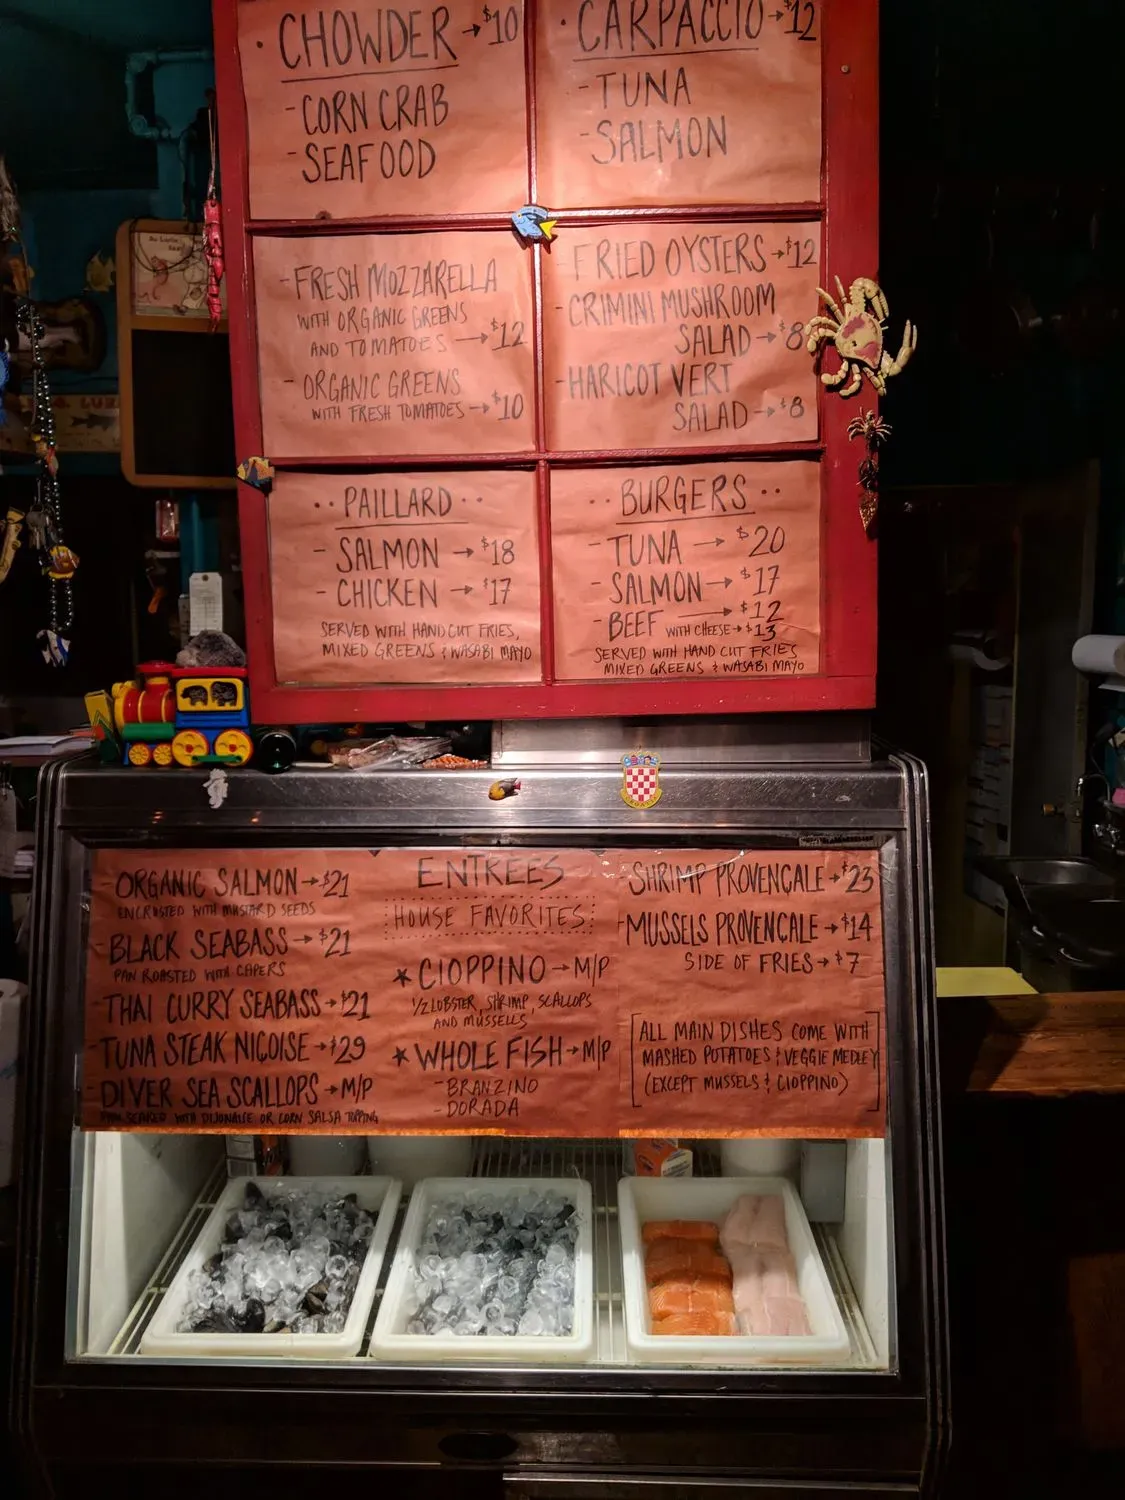 · CHOWDER → $10
- CORN CRAB
- SEAFOOD
· CARPACCIO → $12
- TUNA
- SALMON
- FRESH MOZZARELLA
WITH ORGANIC GREENS
AND TOMATOES → $12
- ORGANIC GREENS
WITH FRESH TOMATOES → $10
- FRIED OYSTERS → $12
- CRIMINI MUSHROOM
SALAD → $8
- HARICOT VERT
SALAD → $8
·· PAILLARD ··
- SALMON → $18
- CHICKEN → $17
SERVED WITH HAND CUT FRIES,
MIXED GREENS & WASABI MAYO
·· BURGERS ··
- TUNA → $20
- SALMON → $17
- BEEF → $12
WITH CHEESE → $13
SERVED WITH HAND CUT FRIES
MIXED GREENS & WASABI MAYO
- ORGANIC SALMON → $21
ENCRUSTED WITH MUSTARD SEEDS
- BLACK SEABASS → $21
PAN ROASTED WITH CAPERS
- THAI CURRY SEABASS → $21
- TUNA STEAK NIÇOISE → $29
- DIVER SEA SCALLOPS → M/P
PAN SEARED WITH DIJONAISE OR CORN SALSA TOPPING
ENTRÉES
HOUSE FAVORITES
★ CIOPPINO → M/P
1/2 LOBSTER, SHRIMP, SCALLOPS
AND MUSSELLS
★ WHOLE FISH → M/P
- BRANZINO
- DORADA
- SHRIMP PROVENÇALE → $23
- MUSSELS PROVENÇALE → $14
SIDE OF FRIES → $7
[ALL MAIN DISHES COME WITH
MASHED POTATOES & VEGGIE MEDLEY
(EXCEPT MUSSELS & CIOPPINO)]